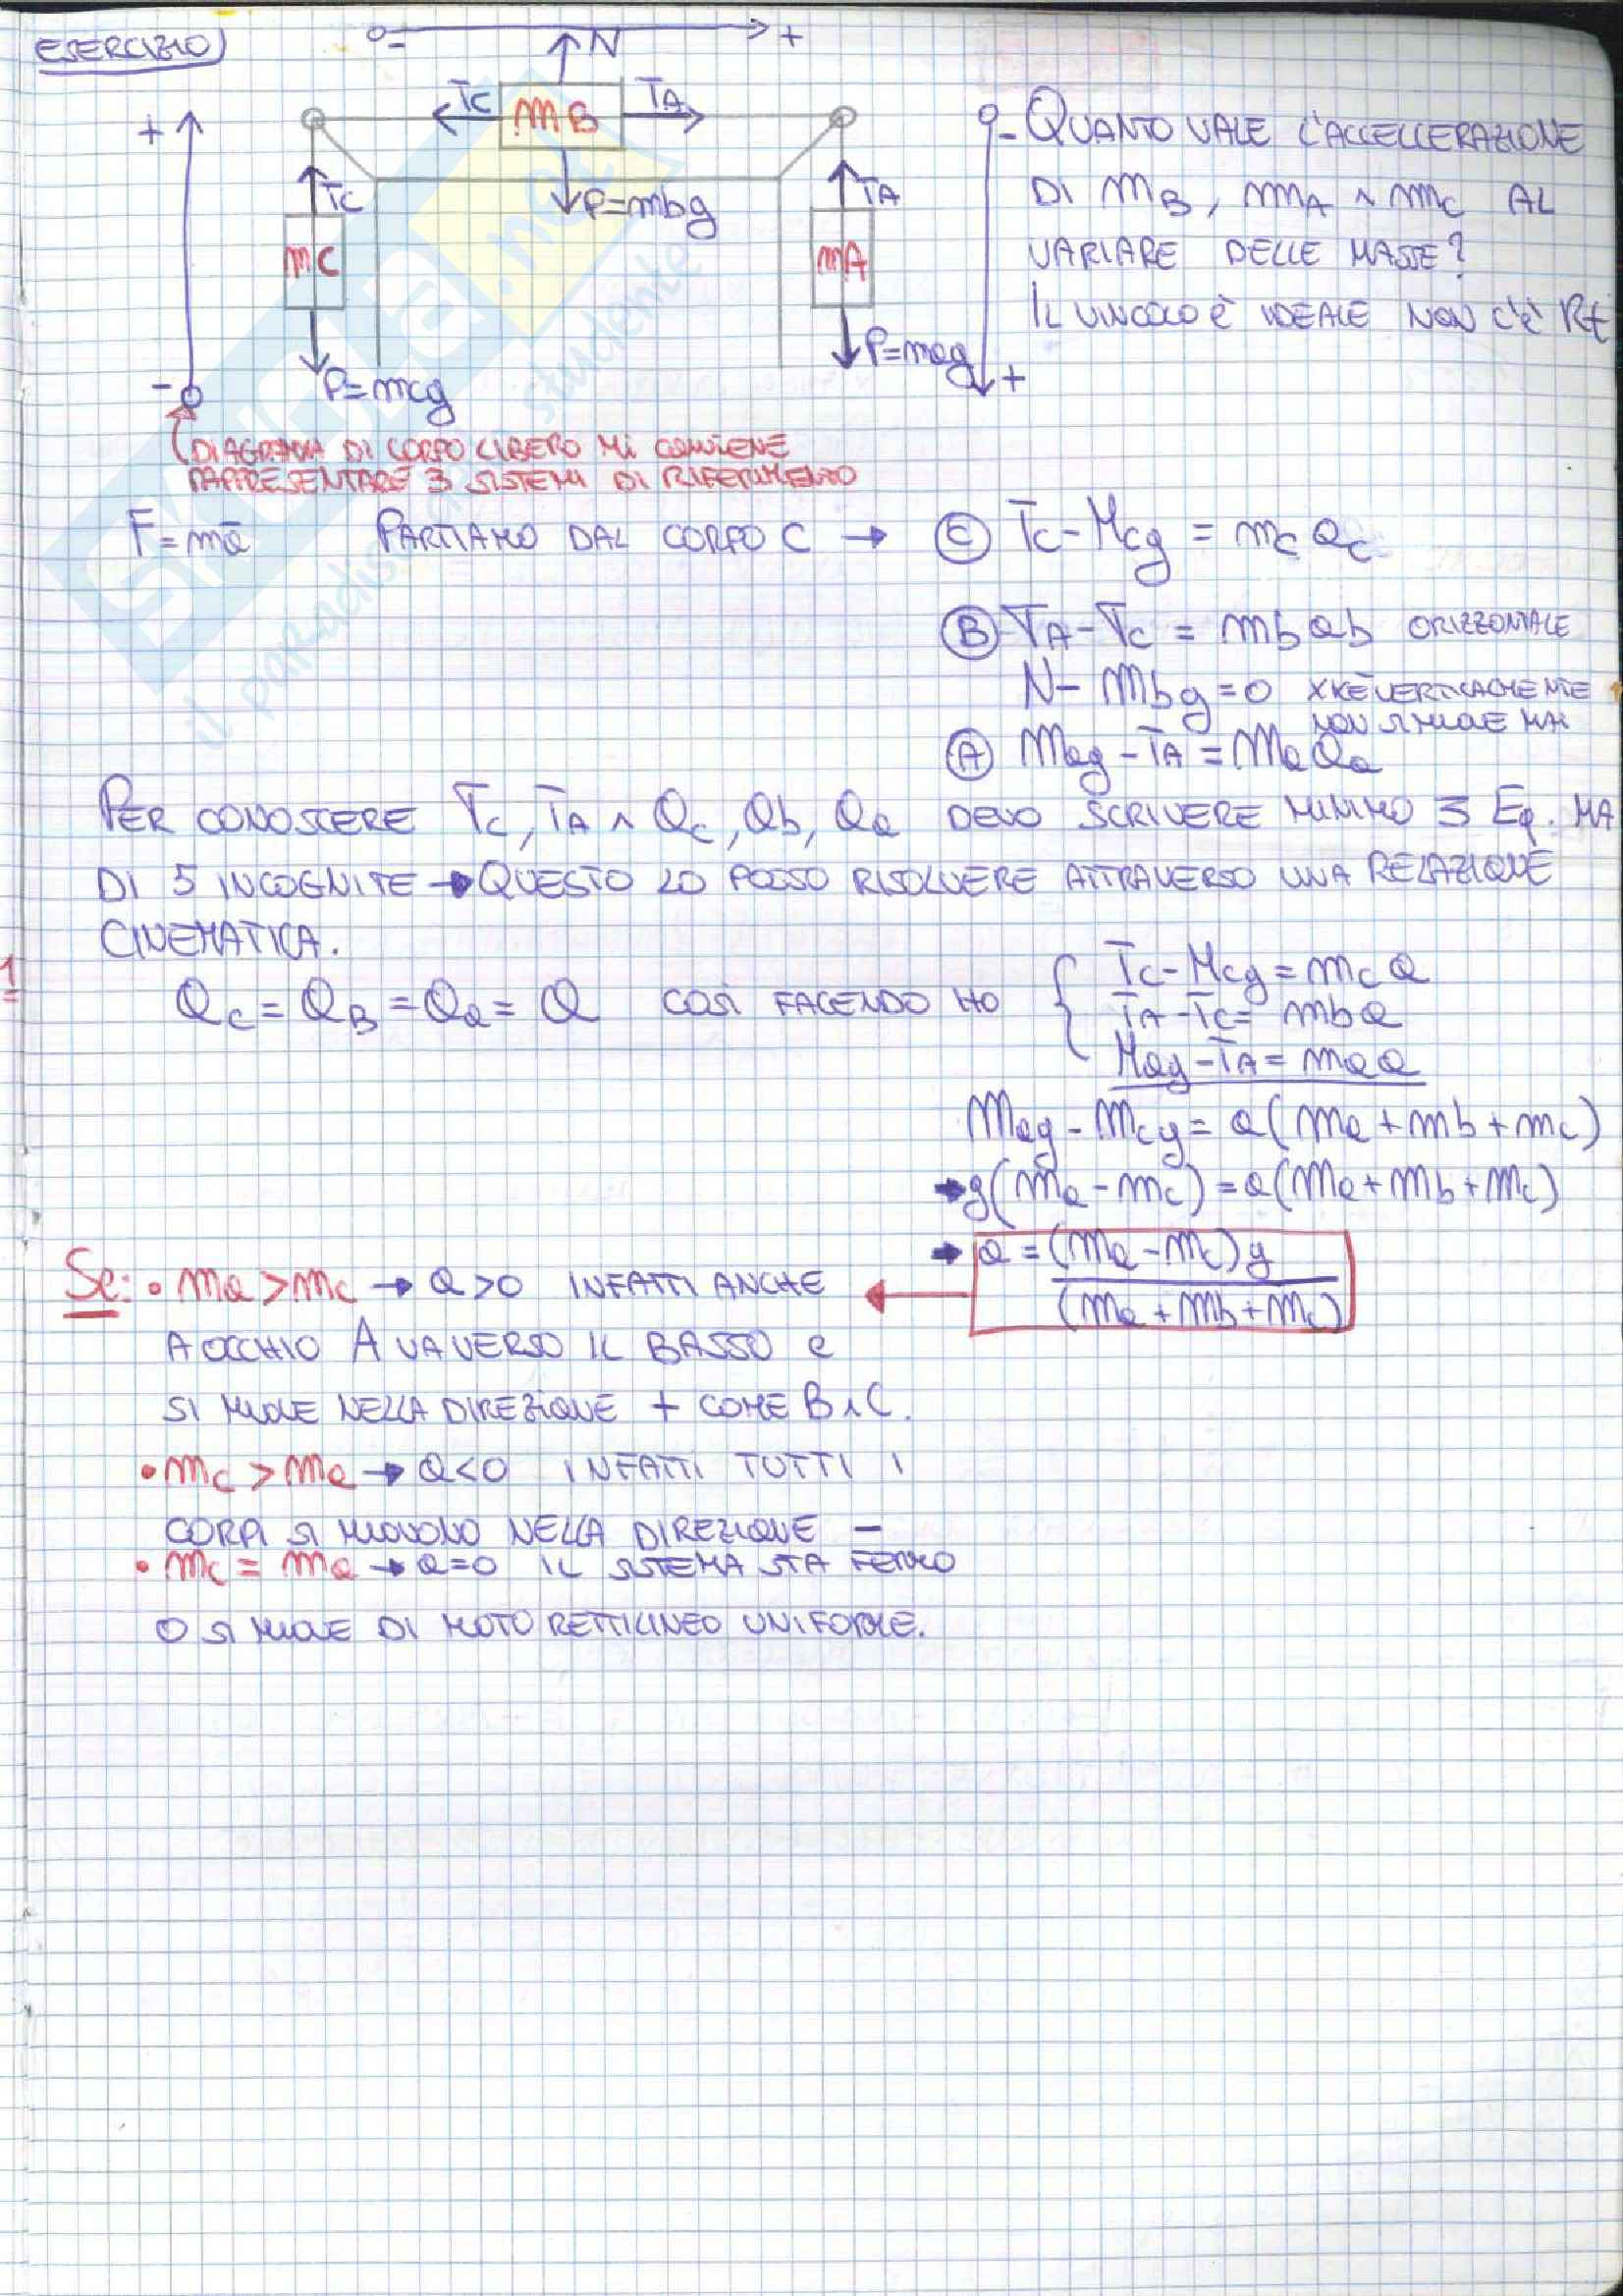 ESERCIZIO)
- +
N
TC mB TA
+
TC P=mbg TA
mC mA
- P=mcg P=mag +
- QUANTO VALE L'ACCELLERAZIONE
DI mB, mA ∧ mC AL
VARIARE DELLE MASSE?
IL VINCOLO È IDEALE NON C'È Rt
DIAGRAMMA DI CORPO LIBERO MI CONVIENE
RAPPRESENTARE 3 SISTEMI DI RIFERIMENTO
F=ma PARTIAMO DAL CORPO C → (C) Tc-Mcg = mc ac
(B) TA-Tc = mb ab ORIZZONTALE
N- Mbg=0 XKÈ VERTICALMENTE
NON SI MUOVE MAI
(A) Mag-TA=Ma aa
PER CONOSCERE Tc, TA ∧ ac, ab, aa DEVO SCRIVERE MINIMO 3 Eq. MA
DI 5 INCOGNITE → QUESTO LO POSSO RISOLVERE ATTRAVERSO UNA RELAZIONE
CINEMATICA.
1
ac = aB = aa = a COSÌ FACENDO HO { Tc-Mcg=mc a
TA-Tc= mba
Mag-TA= maa
Mag-Mcg= a(ma+mb+mc)
→ g(ma-mc)=a(Ma+Mb+Mc)
→ a=(ma-mc)g
(ma+mb+mc)
Se: • ma>mc → a>0 INFATTI ANCHE
A OCCHIO A VA VERSO IL BASSO e
SI MUOVE NELLA DIREZIONE + COME B∧C.
• mc>ma → a<0 INFATTI TUTTI I
CORPI SI MUOVONO NELLA DIREZIONE -
• mc = ma → a=0 IL SISTEMA STA FERMO
O SI MUOVE DI MOTO RETTILINEO UNIFORME.
SKUOLA.net
il paradiso dello studente